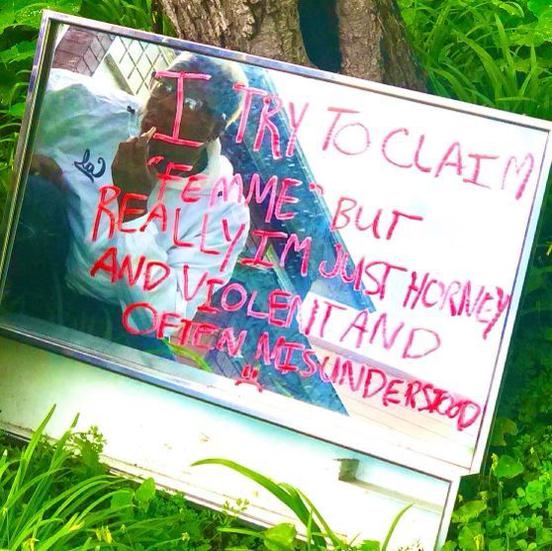 I TRY TO CLAIM
"FEMME" BUT
REALLY I'M JUST HORNEY
AND VIOLENT AND
OFTEN MISUNDERSTOOD
La